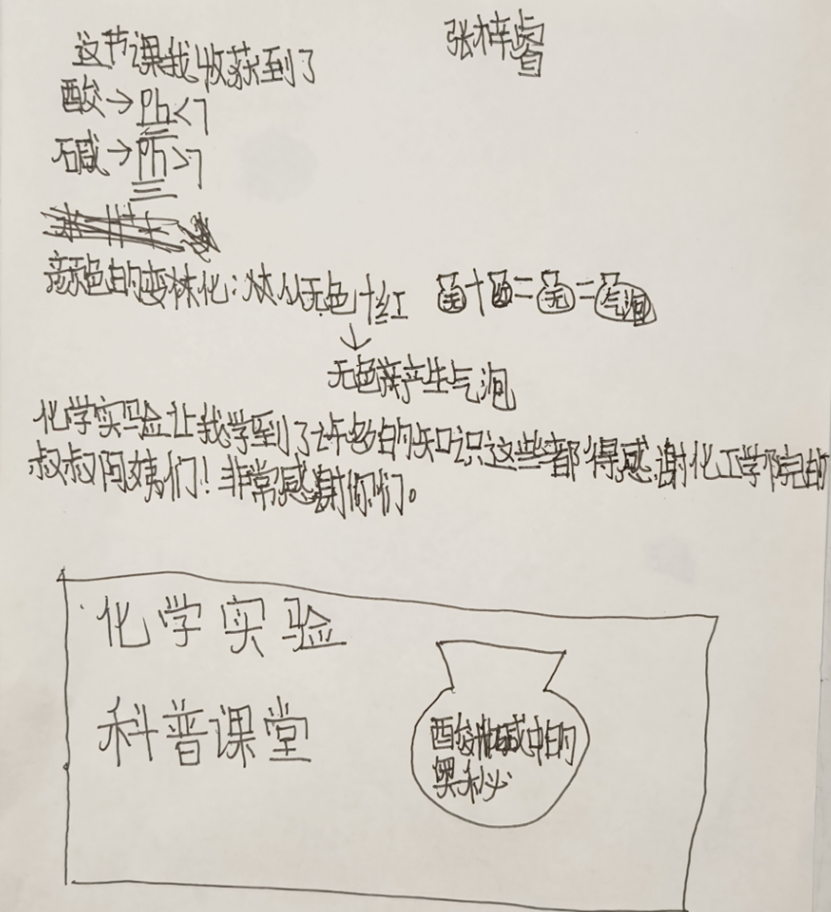 这节课我收获到了
张梓睿
酸→Ph<7
碱→Ph>7
颜色的变化:从无色十红
无+酸=无=气泡
↓
无色产生气泡
化学实验让我学到了许多的知识这些都得感谢化工学院的
叔叔阿姨们!非常感谢你们。
化学实验
科普课堂
酸和碱中的
奥秘